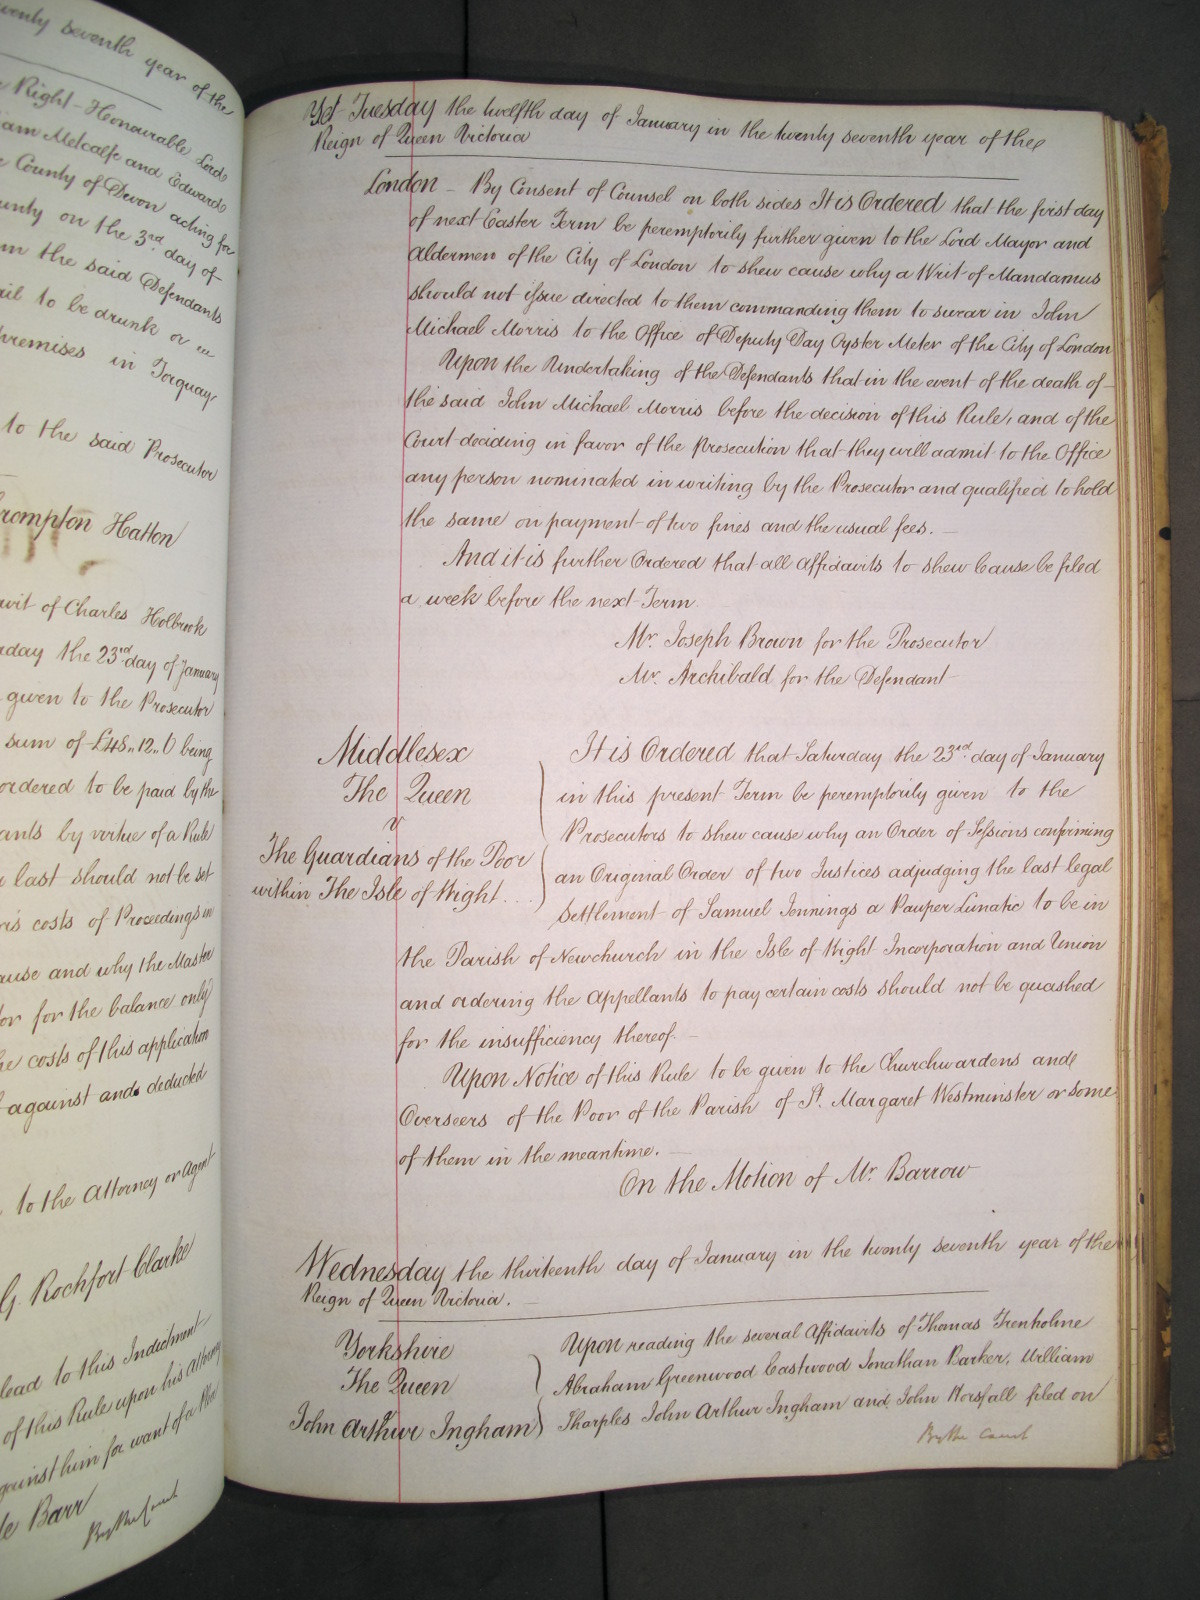 twenty seventh year of the
Right Honourable Lord
Metcalfe and Edward
County of Devon acting for
on the 3rd. day of
the said Defendants
to be drunk or in
premises in Torquay
to the said Prosecutor
Hatton
of Charles Holbrook
the 23rd. day of January
given to the Prosecutor
sum of £48,,12,,0 being
ordered to be paid by the
by virtue of a Rule
last should not be set
costs of Proceedings in
and why the Master
for the balance only
costs of this application
against and deducted
to the Attorney or Agent
G. Rochfort Clarke
to this Indictment
of this Rule upon his Attorney
against him for want of a Plea
Barr
By the Court
Yet Tuesday the twelfth day of January in the twenty seventh year of the
Reign of Queen Victoria
London - By Consent of Counsel on both sides It is Ordered that the first day
of next Easter Term be peremptorily further given to the Lord Mayor and
Aldermen of the City of London to shew cause why a Writ of Mandamus
should not issue directed to them commanding them to swear in John
Michael Morris to the Office of Deputy Day Oyster Meter of the City of London
Upon the Undertaking of the Defendants that in the event of the death of
the said John Michael Morris before the decision of this Rule, and of the
Court deciding in favor of the Prosecution that they will admit to the Office
any person nominated in writing by the Prosecutor and qualified to hold
the same on payment of two fines and the usual fees. -
And it is further Ordered that all affidavits to shew Cause be filed
a week before the next Term
Mr. Joseph Brown for the Prosecutor
Mr. Archibald for the Defendant
Middlesex
The Queen
v
The Guardians of the Poor
within The Isle of Wight ....
It is Ordered that Saturday the 23rd. day of January
in this present Term be peremptorily given to the
Prosecutors to shew cause why an Order of Sessions confirming
an Original Order of two Justices adjudging the last legal
Settlement of Samuel Jennings a Pauper Lunatic to be in
the Parish of Newchurch in the Isle of Wight Incorporation and Union
and ordering the Appellants to pay certain costs should not be quashed
for the insufficiency thereof. -
Upon Notice of this Rule to be given to the Churchwardens and
Overseers of the Poor of the Parish of St. Margaret Westminster or some
of them in the meantime. -
On the Motion of Mr. Barrow
Wednesday the thirteenth day of January in the twenty seventh year of the
Reign of Queen Victoria. -
Yorkshire
The Queen
v
John Arthur Ingham
Upon reading the several Affidavits of Thomas Trenholme
Abraham Greenwood Eastwood Jonathan Barker, William
Sharples John Arthur Ingham and John Horsfall filed on
By the Court